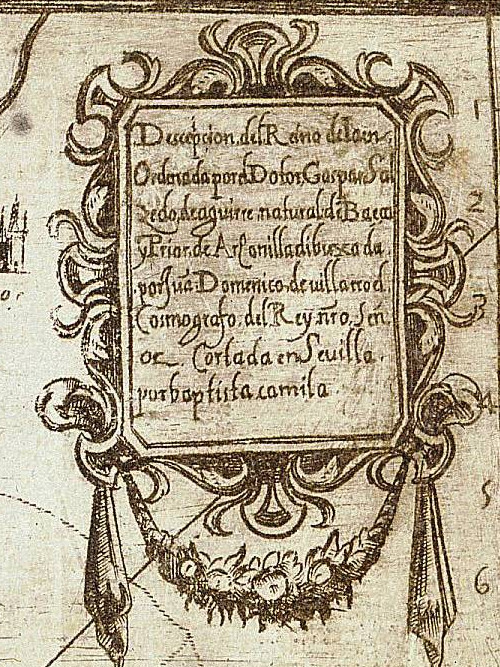 Descripcion del Reino de Iaen
Ordenada por el Dotor Gaspar Sal
zedo de aguirre natural de Baeca
y Prior de Arjonilla dibuxada
por Jua Domenico de villarroel
Cosmografo del Rey nro Señ
or Cortada en Sevilla
por baptista camila
1
2
3
4
5
6
or